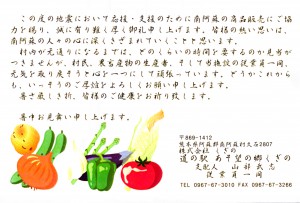 この度の地震において応援・支援のために南阿蘇の商品販売にご協
力を賜り、誠に有り難く厚く御礼申し上げます。皆様の熱い思いは、
南阿蘇の人々の心に深くきざまれていくことと思います。
村内が元通りになるまでは、どのくらいの時間を要するのか見当が
つきませんが、村民、農畜産物の生産者、そして当施設の従業員一同、
元気を取り戻そうと心を一つにして頑張っています。どうかこれから
も、いっそうのご厚情をよろしくお願い申し上げます。
暑さ厳しき折、皆様のご健康をお祈り致します。
暑中お見舞い申し上げます
〒869-1412
熊本県阿蘇郡南阿蘇村久石2807
株式会社 くぎの
道の駅 あそ望の郷くぎの
支配人 山部武志
従業員一同
TEL 0967-67-3010 FAX 0967-67-3266